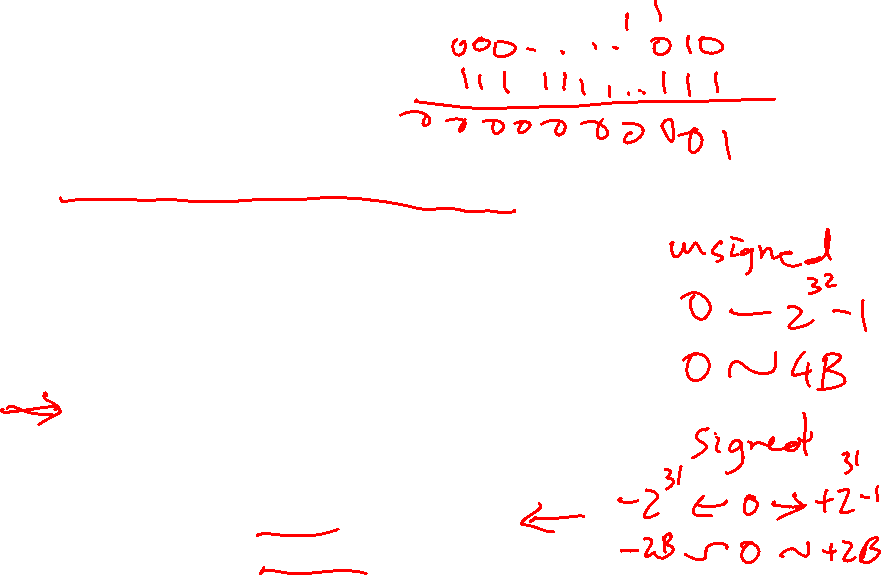 1 1
000- . . - . 010
111 111 1 . . 111
0000000001
unsigned
0 — 2^32 -1
0 ~ 4B
signed
-2^31 ← 0 → +2^31 -1
-2B ~ 0 ~ +2B